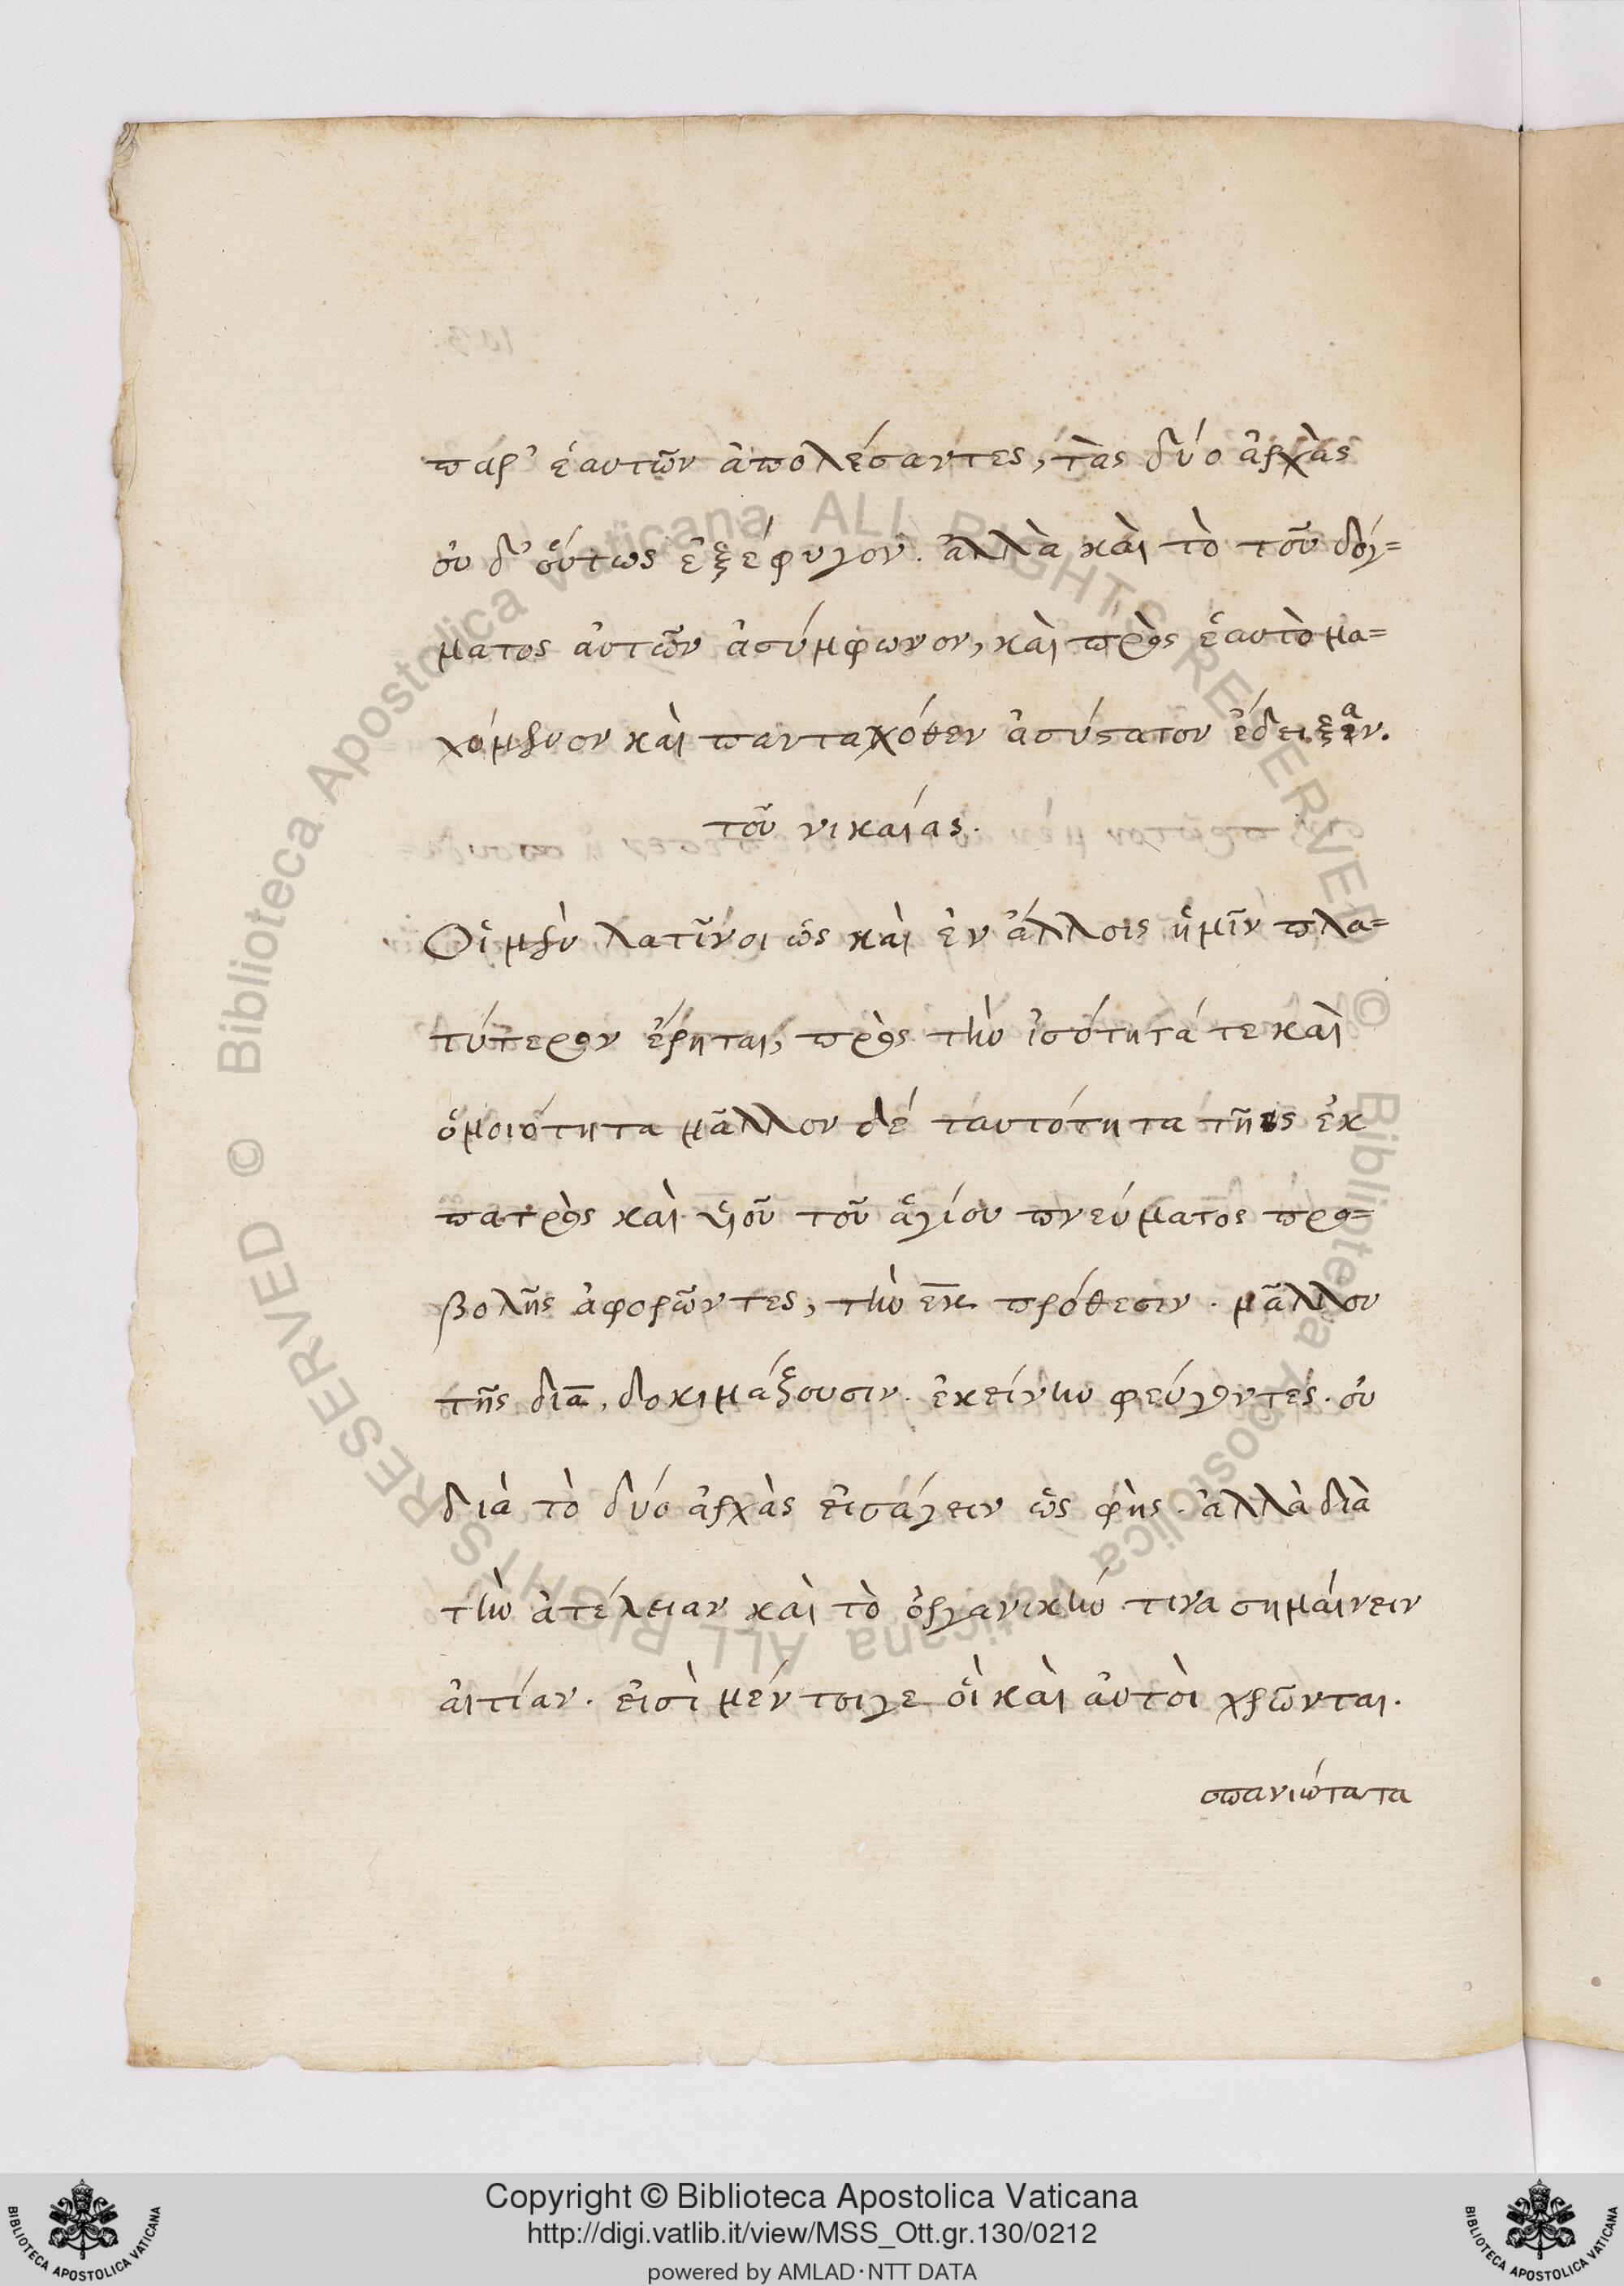 παρ' ἑαυτῶν ἀπολέσαντες, τὰς δύο ἀρχὰς
οὐ δ' οὕτως ἐξέφυγον. ἀλλὰ καὶ τὸ τοῦ δόγ=
ματος αὐτῶν ἀσύμφωνον, καὶ πρὸς ἑαυτὸ μα=
χόμενον καὶ πανταχόθεν ἀσύστατον ἔδειξαν.
τοῦ νικαίας.
Οἱ μὲν λατῖνοι ὡς καὶ ἐν ἄλλοις ἡμῖν πλα=
τύτερον ἔρηται, πρὸς τὴν ἰσότητά τε καὶ
ὁμοιότητα μᾶλλον δέ ταυτότητα τῆς ἐκ
πατρὸς καὶ υἱοῦ τοῦ ἁγίου πνεύματος προ=
βολῆς ἀφορῶντες, τὴν ἐκ πρόθεσιν. μᾶλλον
τῆς διὰ, δοκιμάζουσιν. ἐκείνην φεύγοντες. οὐ
διὰ τὸ δύο ἀρχὰς εἰσάγειν ὡς φὴς. ἀλλὰ διὰ
τὴν ἀτέλειαν καὶ τὸ ὀργανικήν τινα σημαίνειν
αἰτίαν. εἰσὶ μέν τοιγε οἳ καὶ αὐτοὶ χρῶνται.
σπανιώτατα
Copyright © Biblioteca Apostolica Vaticana
http://digi.vatlib.it/view/MSS_Ott.gr.130/0212
powered by AMLAD·NTT DATA